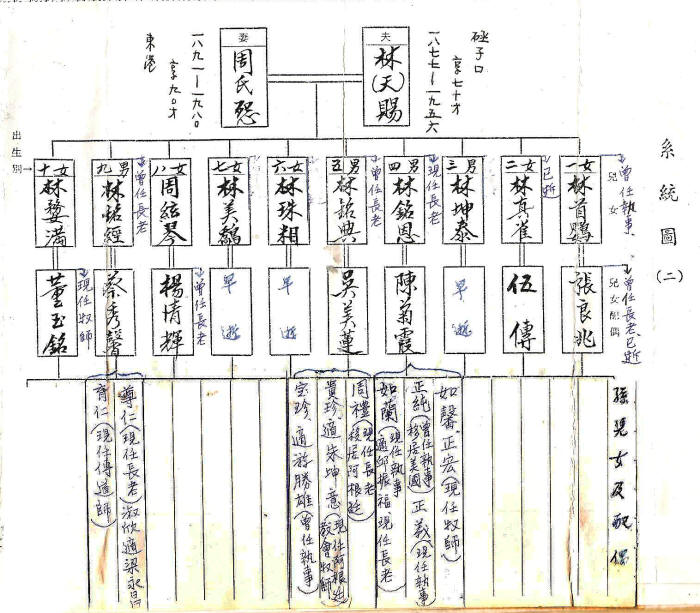 系統圖(二)
夫
林(天)賜
埊子口
一八七七—一九五六
享七十才
妻
周氏怨
一八九一—一九八〇
享九〇才
東港
出生別→
兒女
一女
林首鸚
曾任執事
二女
林真雀
已逝
三男
林坤泰
四男
林銘恩
現任長老
五男
林銘典
曾任長老
六女
林珠相
七女
林美鶴
八女
周絃琴
九男
林銘經
曾任長老
十女
林鶩滿
兒女配偶
張良兆
曾任長老已逝
伍傳
早逝
陳菊霞
吳美蓮
早逝
早逝
楊情輝
曾任長老
蔡秀馨
董玉銘
現任牧師
孫兒女及配偶
如馨、正宏(現任牧師)
正純(曾任執事移居美國)正義(現任執事)
如蘭(現任執事)適邱振福現任長老
周禮(現任長老移居阿根廷)
貴珍適朱坤意(現任阿根廷教會牧師)
宝珍、適游勝雄(曾任執事)
尊仁(現任長老)淑欣適梁永昌
育仁(現任傳道師)